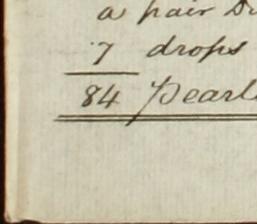 a pair
7 drops
84 Pearl